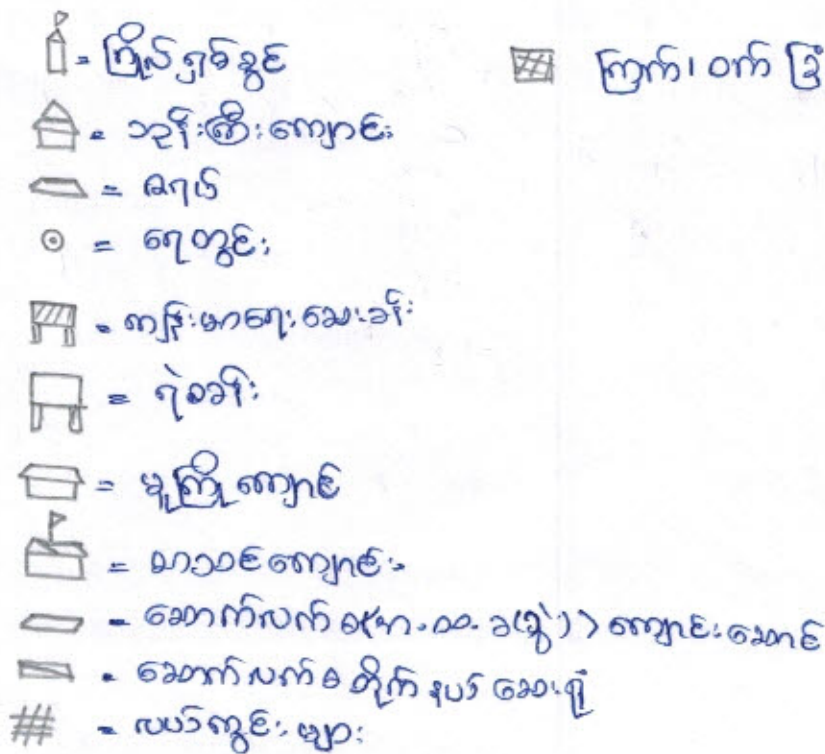 = ကြိုးရှစ်ခွင်
ကြက်၊ ဝက် ခြံ
= ဘုန်းကြီးကျောင်း
= ဇရပ်
= ရေတွင်း
= ကျန်းမာရေး ဆေးခန်း
= ရဲစခန်း
= မူကြို ကျောင်း
= စာသင်ကျောင်း
= ဆောက်လက်စ ကျောင်းဆောင်
= ဆောက်လက်စ တိုက်နယ် ဆေးရုံ
= လယ်ကွင်းများ